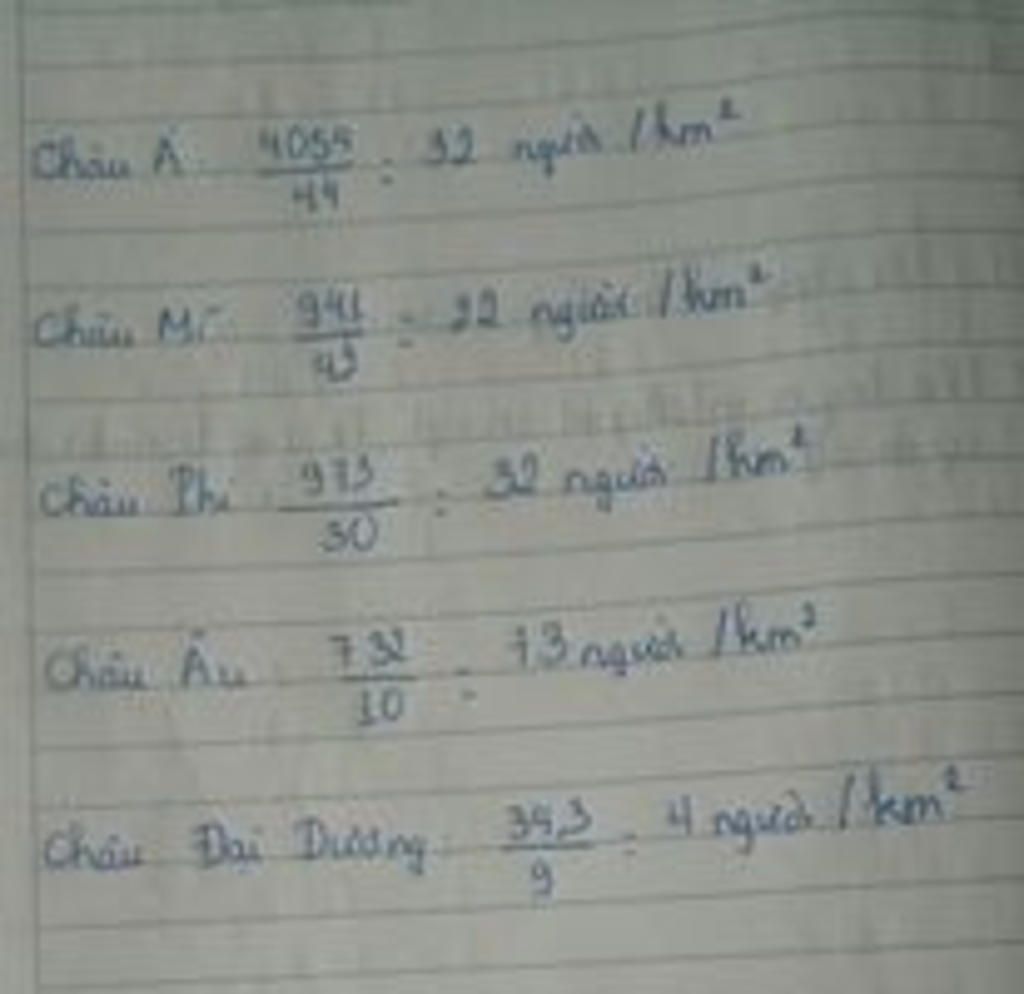 Châu Á: 4055/44 = 92 người/km²
Châu Mĩ: 941/42 = 22 người/km²
Châu Phi: 973/30 = 32 người/km²
Châu Âu: 732/10 = 73 người/km²
Châu Đại Dương: 34,3/9 = 4 người/km²